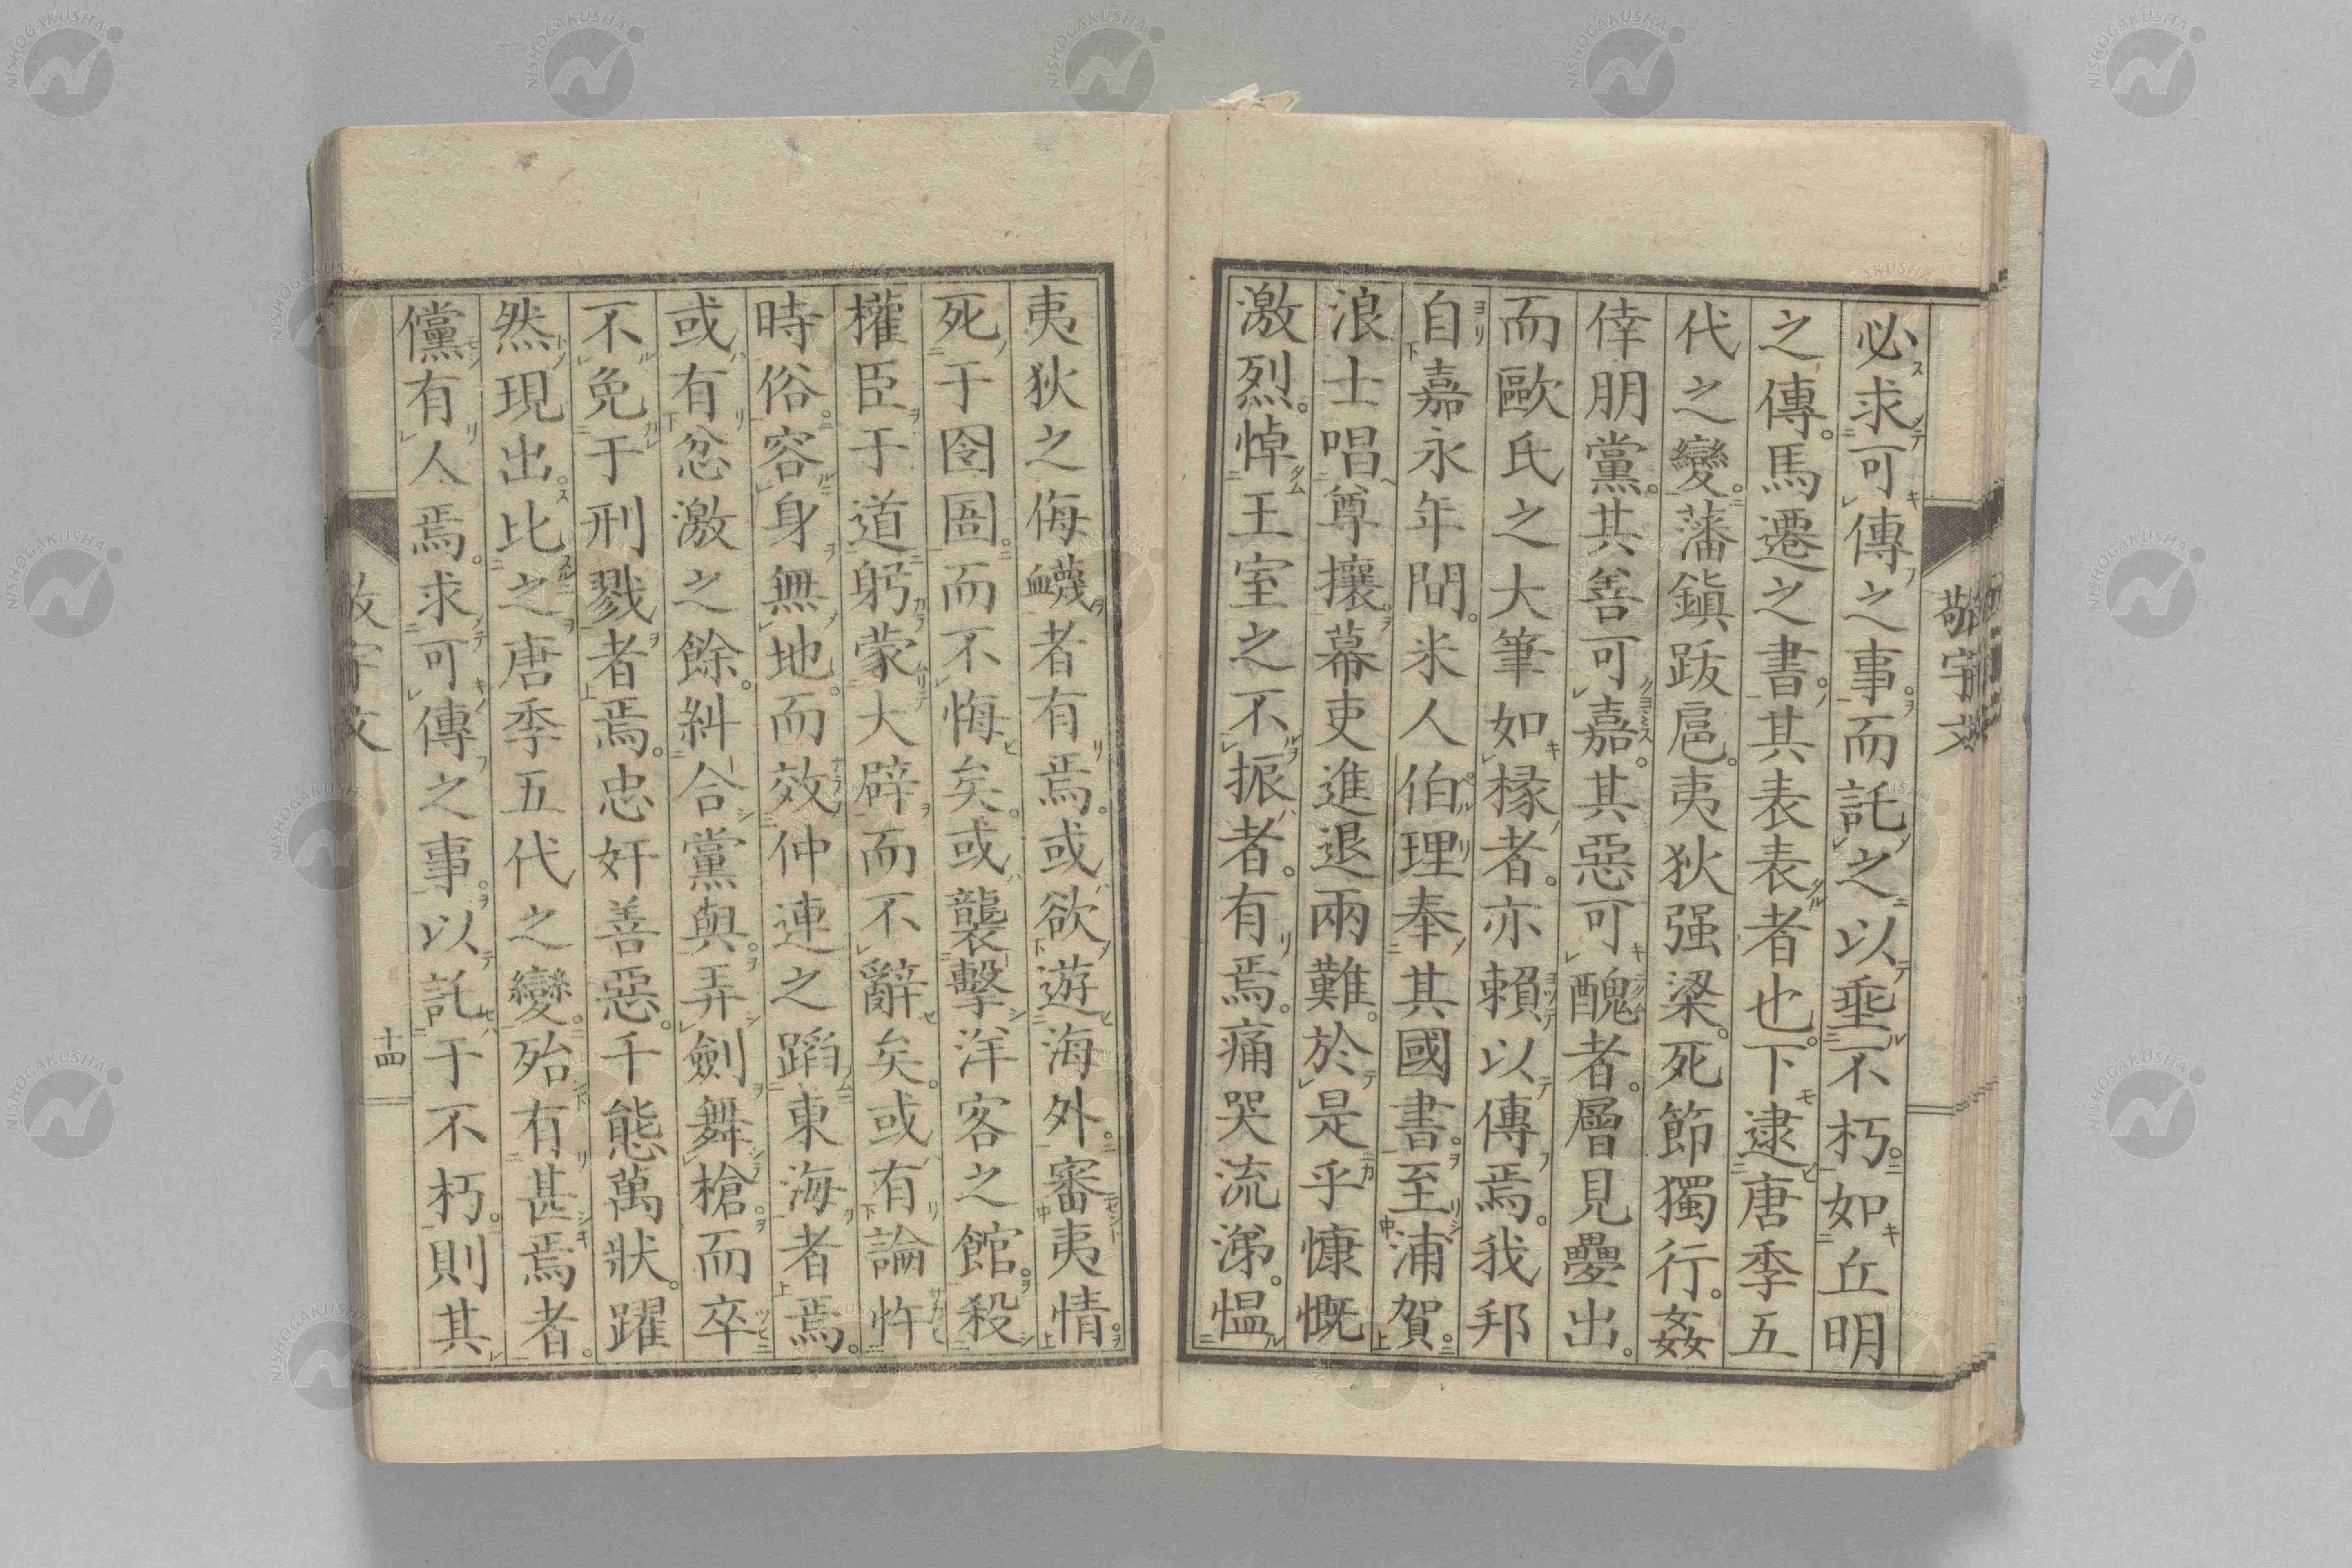 必求可傳之事。而託之以垂不朽。如丘明
之傳。馬遷之書。其表表者也。下逮唐季五
代之變。藩鎮跋扈。夷狄强梁。死節獨行。姦
倖朋黨。其善可嘉。其惡可醜者。層見疊出。
而歐氏之大筆如椽者。亦賴以傳焉。我邦
自嘉永年間。米人伯理奉其國書。至浦賀。
浪士唱尊攘。幕吏進退兩難。於是乎慷慨
激烈。悼王室之不振者。有焉。痛哭流涕。愠
夷狄之侮衊者有焉。或欲遊海外。審夷情。
死于囹圄。而不悔矣。或襲擊洋客之館。殺
權臣于道。躬蒙大辟而不辭矣。或有論忤
時俗。容身無地。而效仲連之蹈東海者焉。
或有忿激之餘。糾合黨與。弄劍舞槍。而卒
不免于刑戮者焉。忠奸善惡。千態萬狀。躍
然現出。比之唐季五代之變。殆有甚焉者。
儻有人焉。求可傳之事。以託于不朽。則其
敬宇文
敬宇文
十四
NISHOGAKUSHA